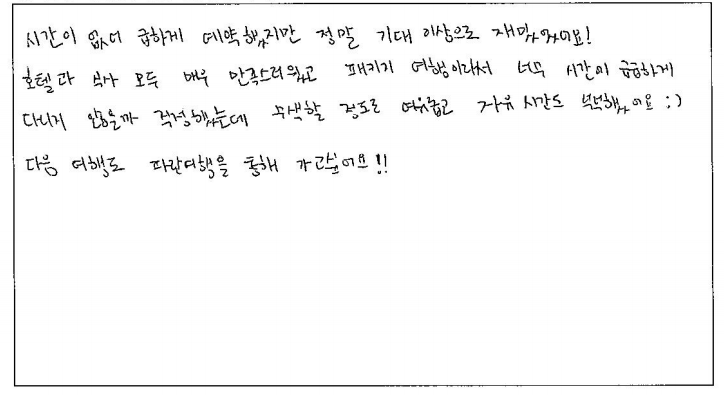 시간이 없어 급하게 예약했지만 정말 기대 이상으로 재밌었어요!
호텔과 식사 모두 매우 만족스러웠고 패키지 여행이라서 너무 시간이 급급하게
다니지 않을까 걱정했는데 무색할 정도로 여유롭고 자유 시간도 넉넉했어요 :)
다음 여행도 파란여행을 통해 가고싶어요!!